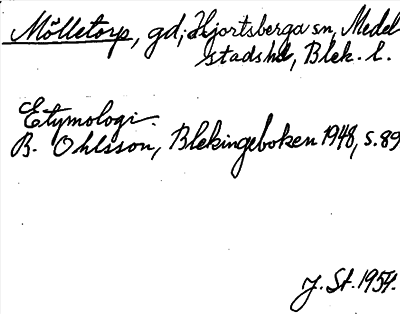 Mölletorp, gd, Hjortsberga sn, Medel
stads hd, Blek. l.
Etymologi.
B. Ohlsson, Blekingeboken 1948, s. 89
J. St. 1954.